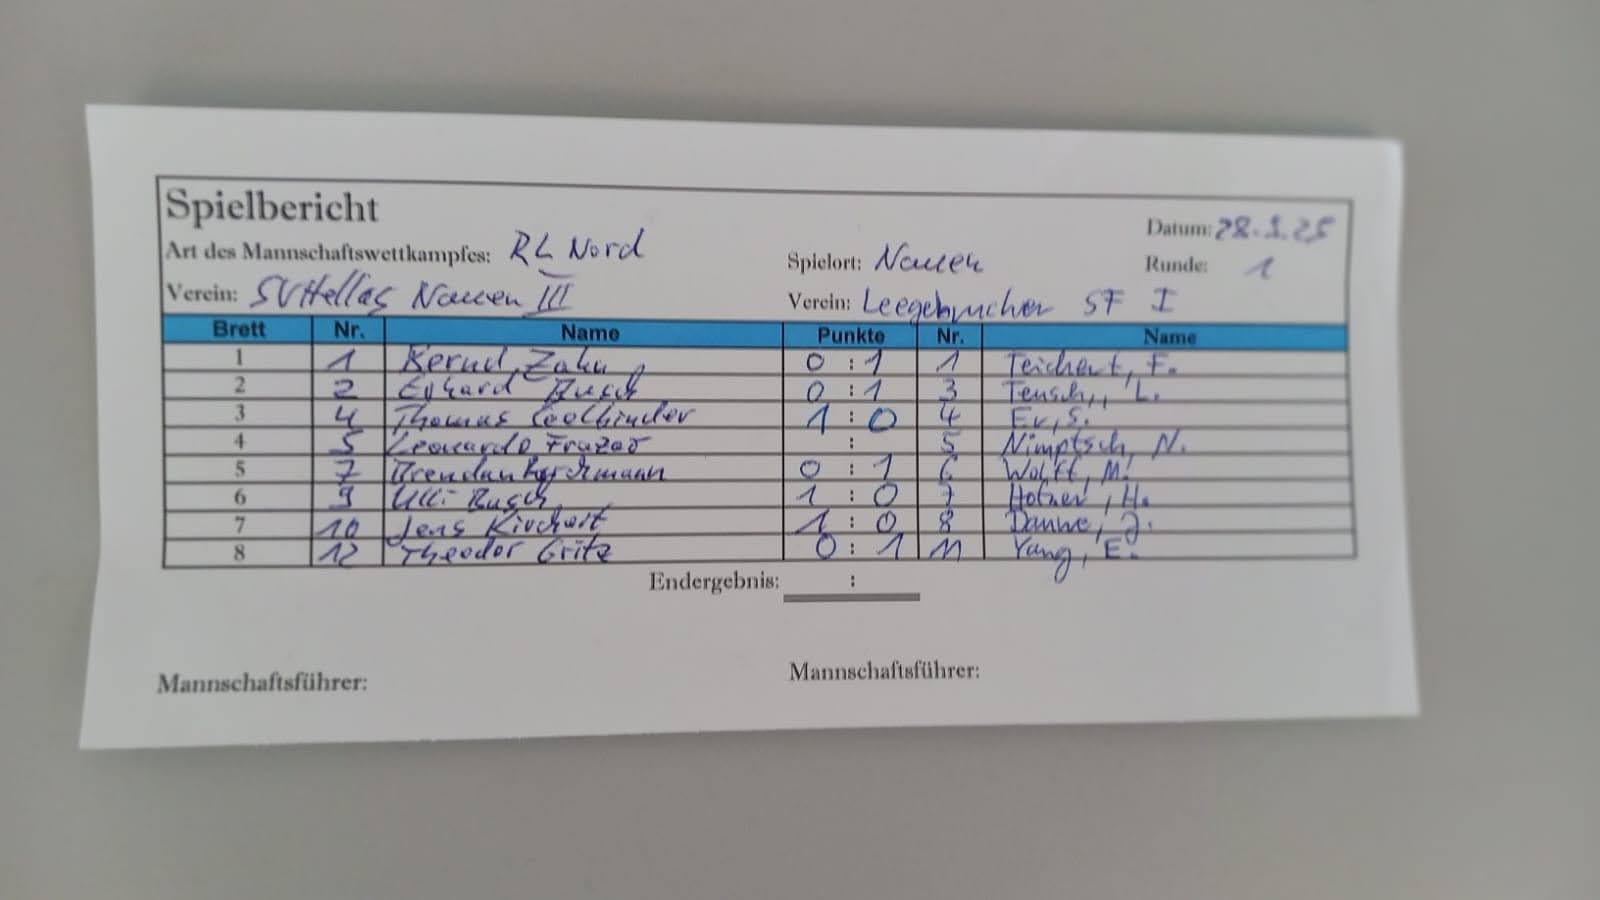 Spielbericht
Datum: 28.9.25
Art des Mannschaftswettkampfes: RL Nord Spielort: Nauen Runde: 1
Verein: SV Hellas Nauen III Verein: Leegebrucher SF I
Brett Nr. Name Punkte Nr. Name
1 1 Bernd Zahn 0 : 1 1 Teichert, F.
2 2 Ekhard Rusch 0 : 1 3 Teusch, L.
3 4 Thomas 1 : 0 4 S.
4 5 Leonardo Frazao : 5 Nimptsch, N.
5 7 Brendan 0 : 1 6 Wolff, M.
6 9 Ulli Rusch 1 : 0 7 H.
7 10 Jens Kirchert 1 : 0 8 J.
8 12 Theodor Gritz 0 : 1 11 Yang, E.
Endergebnis: :
Mannschaftsführer: Mannschaftsführer: